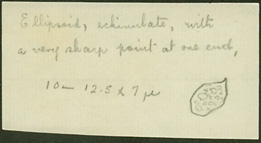 Ellipsoid, echinulate, with
a very sharp point at one end,
10 – 12.5 x 7 µ